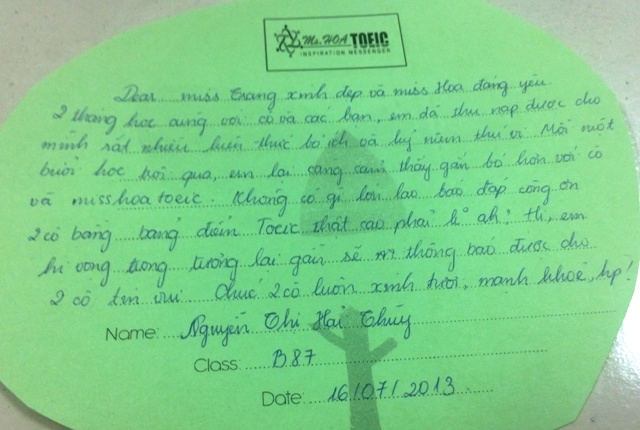 Ms. HOA TOEIC
INSPIRATION MESSENGER
Dear miss Trang xinh đẹp và miss Hoa đáng yêu
2 tháng học cùng với cô và các bạn, em đã thu nạp được cho
mình rất nhiều kiến thức bổ ích và kỷ niệm thú vị. Mỗi một
buổi học trôi qua, em lại càng cảm thấy gắn bó hơn với cô
và misshoatoeic. Không có gì lớn lao báo đáp công ơn
2 cô bằng bảng điểm Toeic thật cao phải k° ah? Hì, em
hi vọng trong tương lai gần sẽ thông báo được cho
2 cô tin vui. Chúc 2 cô luôn xinh tươi, mạnh khoẻ, hp!
Name: Nguyễn Thị Hải Thủy
Class: B87
Date: 16/07/2013